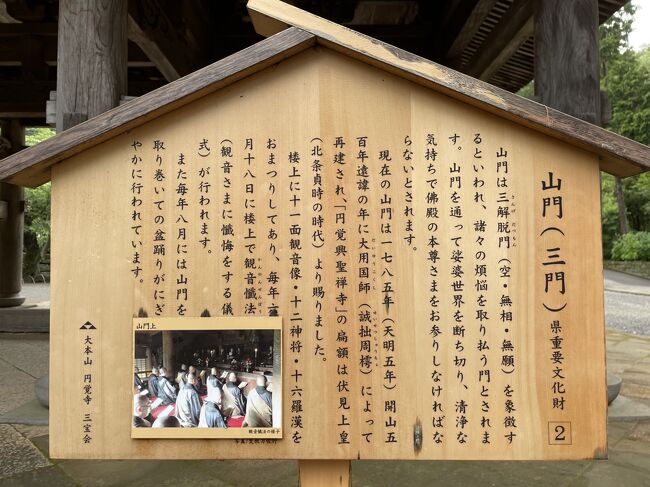 山門（三門） 県重要文化財 2
山門は三解脱門（空・無相・無願）を象徴す
さんげだつもん
るといわれ、諸々の煩悩を取り払う門とされま
す。山門を通って娑婆世界を断ち切り、清浄な
気持ちで佛殿の本尊さまをお参りしなければな
らないとされます。
現在の山門は一七八五年（天明五年）開山五
百年遠諱の年に大用国師（誠拙周樗）によって
再建され、「円覚興聖禅寺」の扁額は伏見上皇
（北条貞時の時代）より賜りました。
楼上に十一面観音像・十二神将・十六羅漢を
おまつりしてあり、毎年
月十八日に楼上で観音懺法
かんのんせんぽう
（観音さまに懺悔をする儀
式）が行われます。
また毎年八月には山門を
取り巻いての盆踊りがにぎ
やかに行われています。
大本山 円覚寺 三宝会
山門上
観音懺法の様子